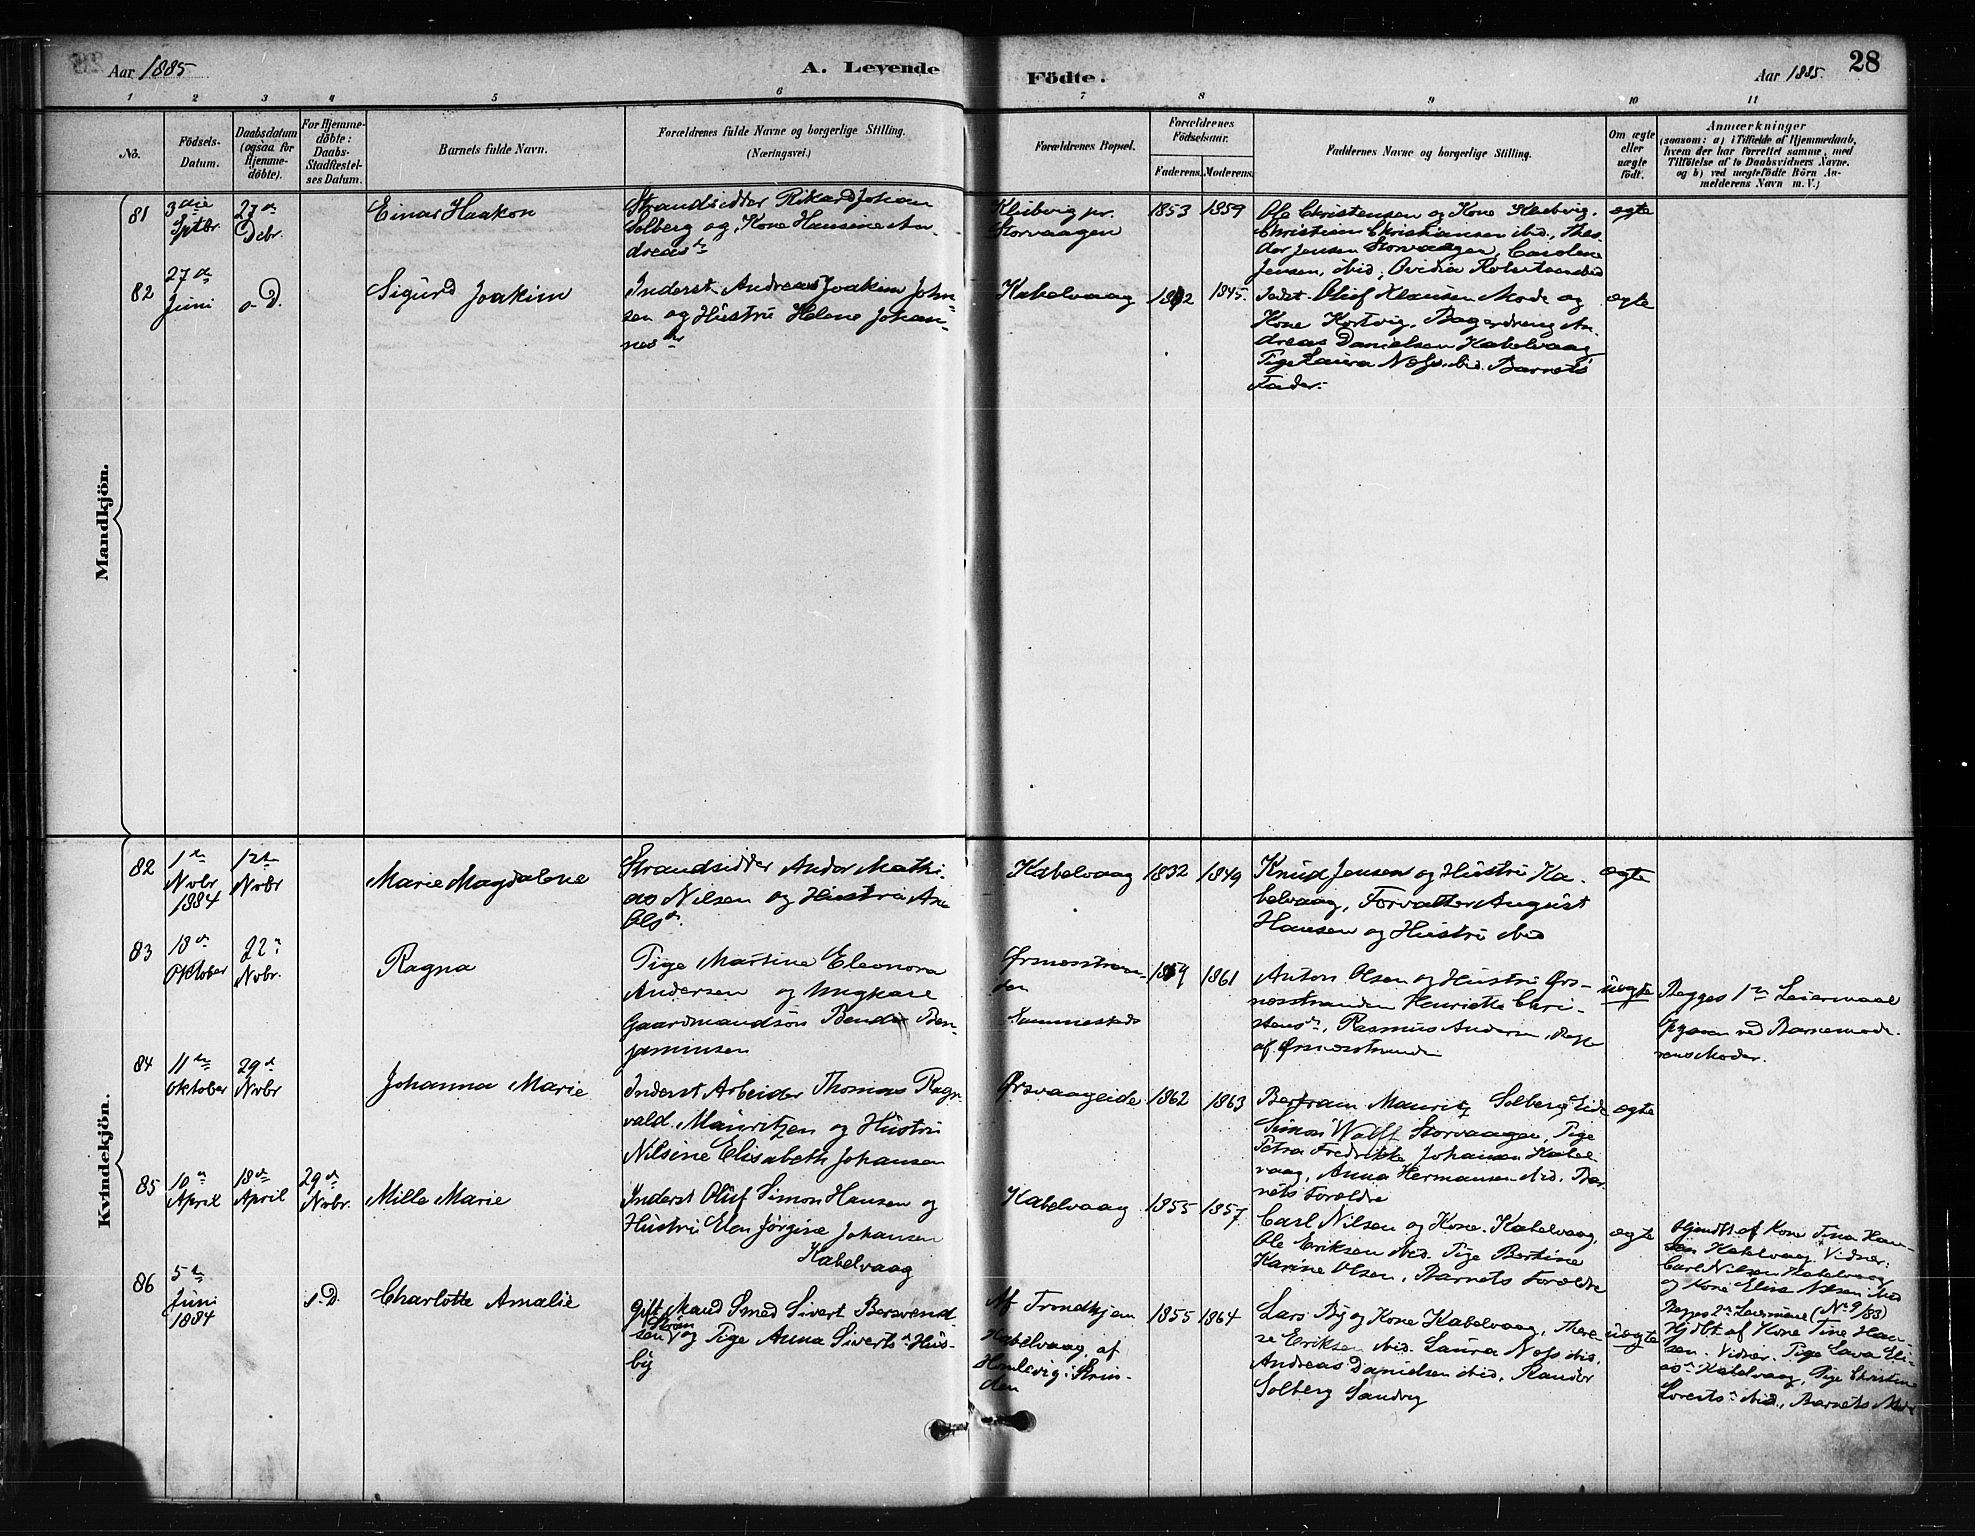 Aar 1885
A. Levende
Födte.
Aar 1885.
28
1 2 3 4 5 6 7 8 9 10 11
No.
Födsels-
Datum.
Daabsdatum
(ogsaa for
Hjemme-
döbte).
For Hjemme-
döbte:
Daabs-
Stadfæstel-
ses Datum.
Barnets fulde Navn.
Forældrenes fulde Navne og borgerlige Stilling.
(Næringsvei.)
Forældrenes Bopæl.
Forældrenes
Födselsaar.
Faderens. Moderens.
Faddernes Navne og borgerlige Stilling.
Om ægte
eller
uægte
födt.
Anmærkninger
(saasom: a) i Tilfælde af Hjemmedaab,
hvem der har forrettet samme, med
Tilföielse af to Daabsvidners Navne.
og b) ved uægtefödte Börn An-
melderens Navn m. V.;
Mandkjön.
81
3die
Sptbr.
27de
Dcbr.
Einar Haakon
Strandsidder Rikard Johan
Solberg og Kone Hansine An-
dreasdr
Storvaagen
1853
1859
Ole Christensen og Kone
Christian Christiansen ibid,
Jensen Storvaagen, Caroline
Jensen, ibid,
ægte
82
27de
Juni
s. D.
Sigurd Joakim
Inderst Andreas Joakim John-
sen og Hustru Helene Johan-
nesdr
Kabelvaag
1845.
Kone
dreas Danielsen Kabelvaag
Pige Laura Næss ibid. Barnets
Fader.
ægte
Kvindekjön.
82
1ste
Nvbr
1884
12te
Nvbr
Marie Magdalene
Strandsidder Andor Mathi-
as Nilsen og Hustru Ane
Olsdr
Kabelvaag
1832
1849
Knud Jensen og Hustru Ka-
belvaag, Forvalter August
Hansen og Hustru ibid
ægte
83
18de
Oktober
22de
Nvbr.
Ragna
Pige Martine Eleonora
Andersen og Ungkarl
Gaardmandsön Bendix Ben-
jaminsen
Ørsnesstran-
den
Sammesteds
1861
Anton Olsen og Hustru Ørs-
nesstranden Henriette Chri-
stensdr, Rasmus Andersen, Begge
af Ørsnesstranden
uægte
Begges 1ste Leiermaal
Opgaven ved Barnemode-
rens Moder.
84
11te
Oktober
29de
Nvbr
Johanna Marie
Inderst Arbeider Thomas Ragn-
vald Mauritzen og Hustru
Nilsine Elisabeth Johansen
Ørsvaageide
1862
1863
Bertram Mauritz Solberg Eide
Simon Wolff Storvaagen, Pige
Petra Fredrikke Johansen Kabel-
vaag, Anna Hermansen ibid. Bar-
nets Forældre
ægte
85
10de
April
18de
April
29de
Nvbr.
Mille Marie
Inderst Oluf Simon Hansen og
Hustru Elen Jørgine Johansen
Kabelvaag
Kabelvaag
1855
1857
Carl Nilsen og Kone Kabelvaag,
Ole Eriksen ibid. Pige Bertine
Karine Olsen, Barnets Forældre
ægte
Hjmdbt af Kone Tina Han-
sen Kabelvaag Vidner:
Carl Nilsen Kabelvaag
og Kone Elise Nilsen ibid
86
5te
Juni
1884
s. D.
Charlotte Amalie
gift Mand Smed Sivert Bersvend-
sen Strøm og Pige Anna Sivertsdr Hus-
by
Af Trondhjem
Kabelvaag, af
Strin-
den
1855
1864
Lars By og Kone Kabelvaag, There-
se Eriksen ibid. Laura Næss ibid.
Andreas Danielsen ibid, Randor
Solberg Sandvig
uægte
Begges 2det Leiermaal (No 9/83)
Hjdbt af Kone Tine Han-
sen. Vidner. Pige Lava Eli-
asdr Kabelvaag, Pige Christine
ibid., Barnets